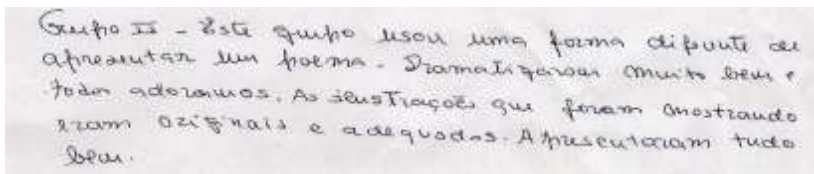 Grupo II - Este grupo usou uma forma diferente de
apresentar um poema. Dramatizaram muito bem e
todos adoramos. As ilustrações que foram mostrando
eram originais e adequadas. Apresentaram tudo
bem.